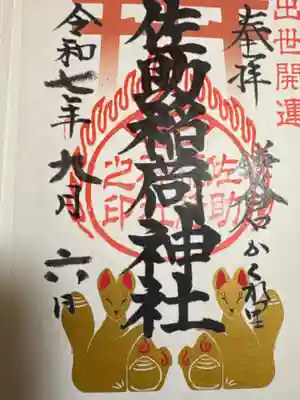 出世開運
奉拝
鎌倉かくれ里
佐助稲荷神社
佐助
之印
令和七年九月六日